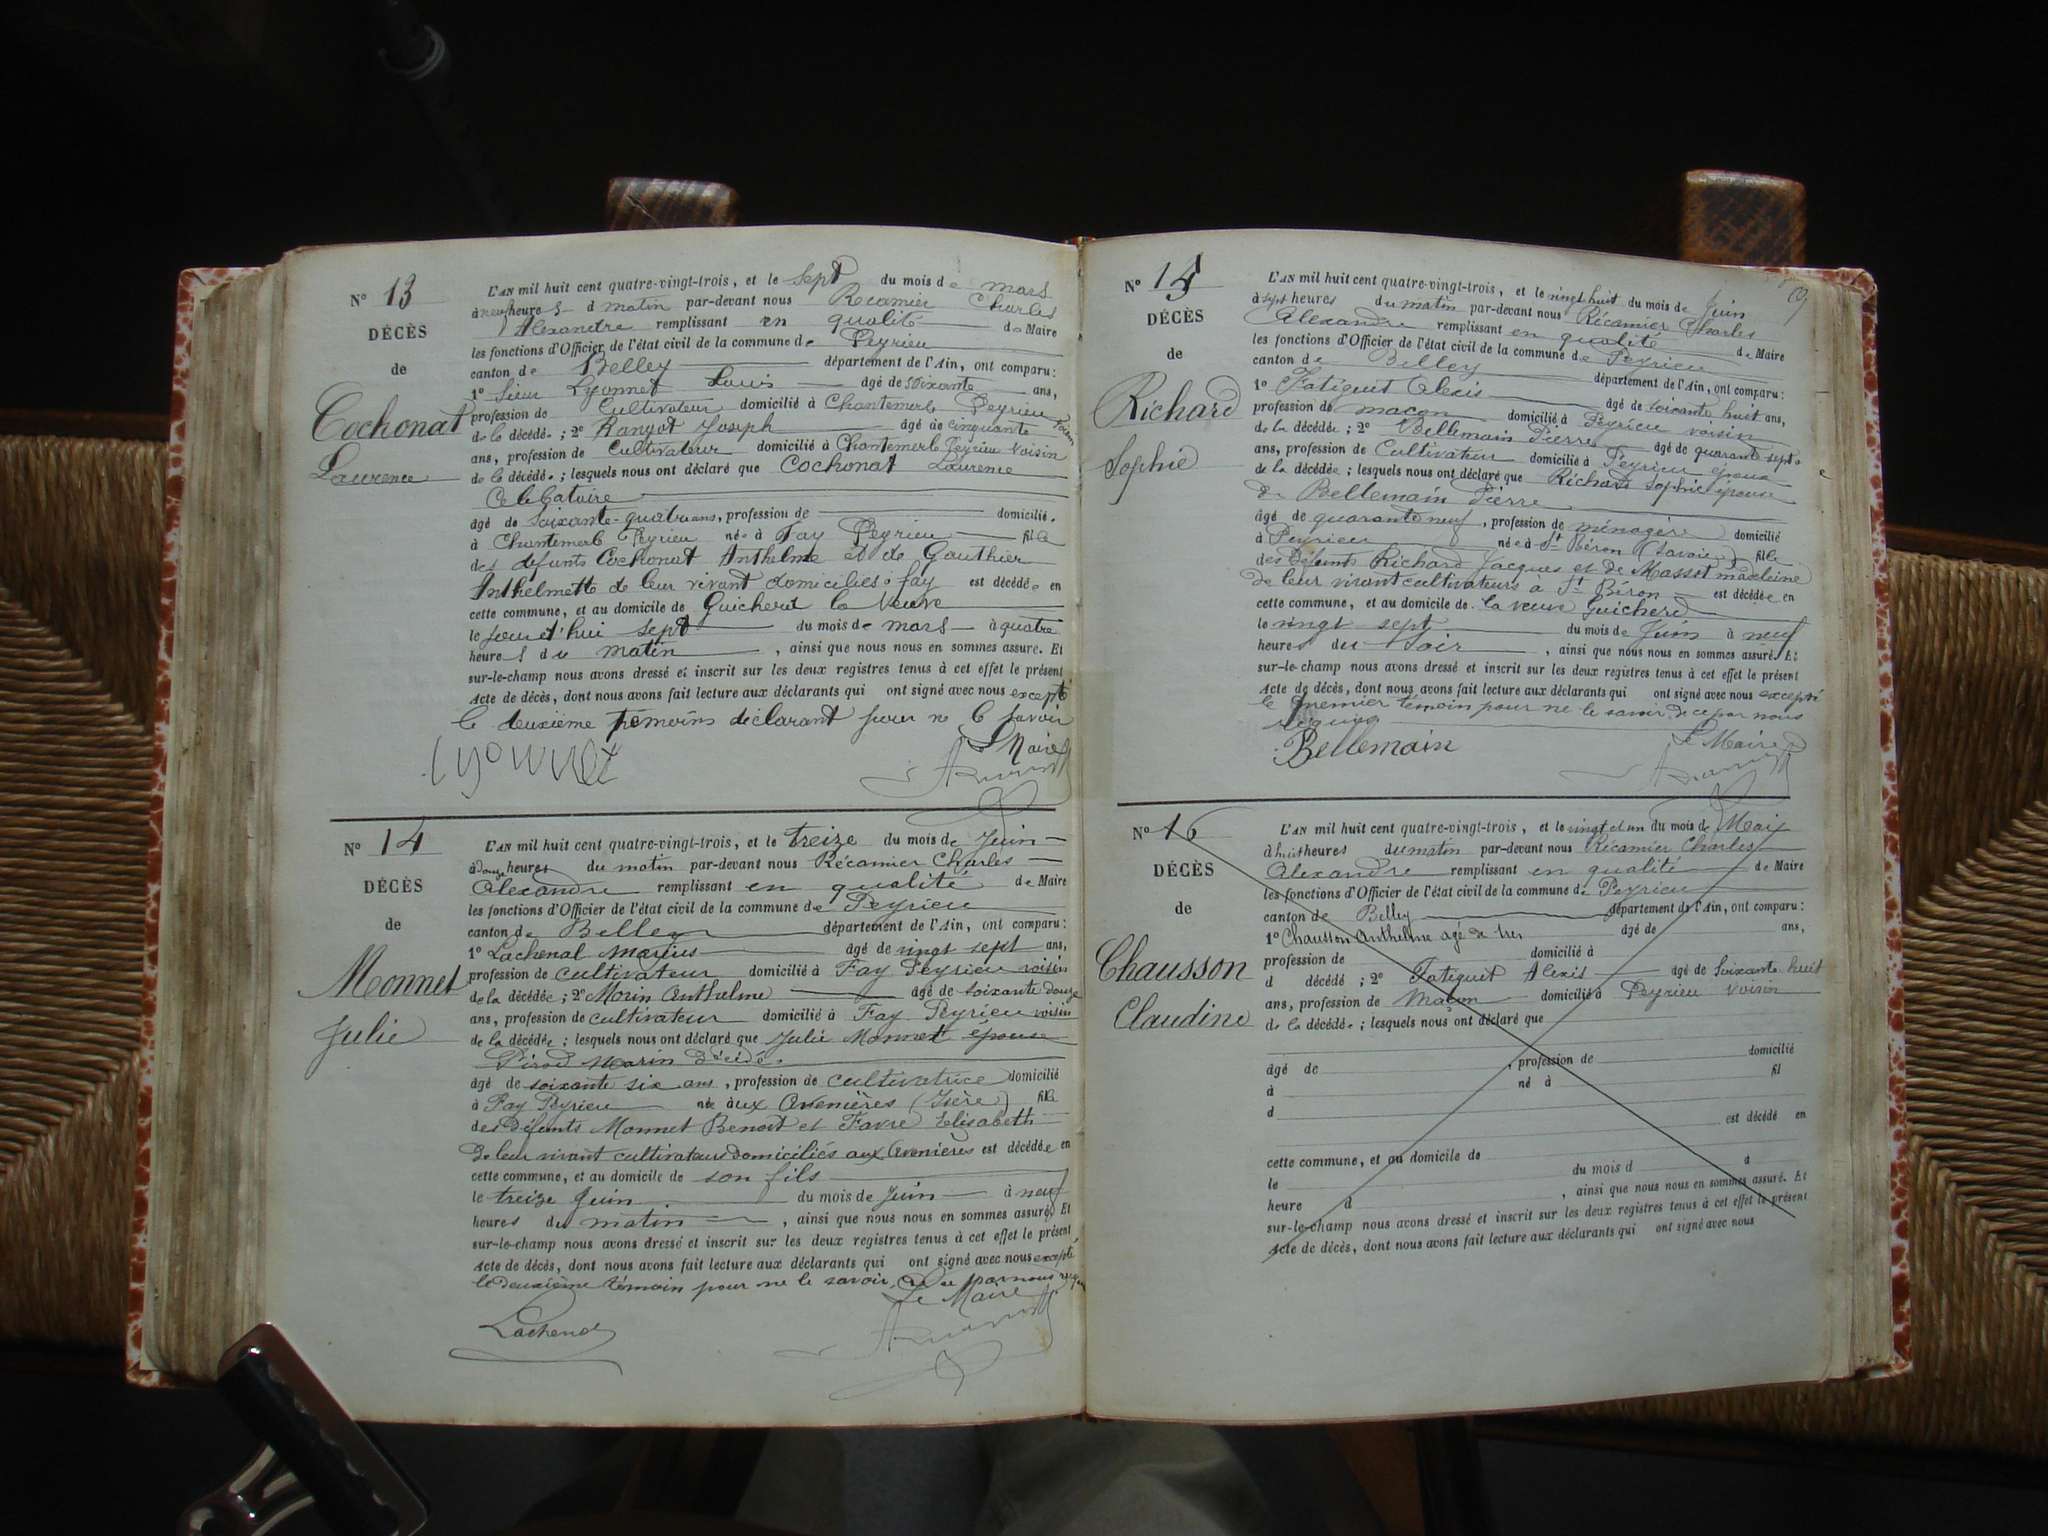 N° 13
DÉCÈS
de
Cochonat
Laurence
L'AN mil huit cent quatre-vingt-trois, et le Sept du mois de mars
à neuf heures d matin par-devant nous Récamier Charles
Alexandre remplissant en qualité de Maire
les fonctions d'Officier de l'état civil de la commune de Peyrieu
canton de Belley département de l'Ain, ont comparu:
1° Sieur Lyonnet Louis agé de soixante ans,
profession de Cultivateur domicilié à Chantemerle Peyrieu voisin
de la décédée; 2° Rangot Joseph agé de cinquante
ans, profession de Cultivateur domicilié à Chantemerle Peyrieu voisin
de la décédée; lesquels nous ont déclaré que Cochonat Laurence
Celibataire
âgé de Soixante-quatre ans, profession de domicilié.
à Chantemerle Peyrieu née à Fay Peyrieu fille
des defunts Cochonat Anthelme et de Gauthier
Anthelmette de leur vivant domiciliés à fay est décédée en
cette commune, et au domicile de Guicherd la Veuve
le jourd'hui sept du mois de mars à quatre
heures du matin, ainsi que nous nous en sommes assuré. Et
sur-le-champ nous avons dressé et inscrit sur les deux registres tenus à cet effet le présent
Acte de décès, dont nous avons fait lecture aux déclarants qui ont signé avec nous excepté
le deuxième témoins déclarant pour ne le savoir
Le Maire
Lyonnet
N° 14
DÉCÈS
de
Monnet
Julie
L'AN mil huit cent quatre-vingt-trois, et le treize du mois de Juin
à douze heures du matin par-devant nous Récamier Charles
Alexandre remplissant en qualité de Maire
les fonctions d'Officier de l'état civil de la commune de Peyrieu
canton de Belley département de l'Ain, ont comparu:
1° Lachenal Marius agé de vingt sept ans,
profession de cultivateur domicilié à Fay Peyrieu voisin
de la décédée; 2° Morin Anthelme agé de soixante douze
ans, profession de cultivateur domicilié à Fay Peyrieu voisin
de la décédée; lesquels nous ont déclaré que Julie Monnet épouse
Marin décédé
âgé de soixante six ans, profession de cultivatrice domicilié
à Fay Peyrieu née aux Avenières (Isère) fille
des défunts Monnet Benoit et Favre Elisabeth
de leur vivant cultivateurs domiciliés aux Avenières est décédée en
cette commune, et au domicile de son fils
le treize Juin du mois de Juin à neuf
heures du matin, ainsi que nous nous en sommes assuré. Et
sur-le-champ nous avons dressé et inscrit sur les deux registres tenus à cet effet le présent
Acte de décès, dont nous avons fait lecture aux déclarants qui ont signé avec nous excepté
le deuxième témoin pour ne le savoir de ce par nous requis
Le Maire
Lachenal
N° 15
DÉCÈS
de
Richard
Sophie
L'AN mil huit cent quatre-vingt-trois, et le vingt huit du mois de Juin
à sept heures du matin par-devant nous Récamier Charles
Alexandre remplissant en qualité de Maire
les fonctions d'Officier de l'état civil de la commune de Peyrieu
canton de Belley département de l'Ain, ont comparu:
1° Fatiguet Alexis agé de soixante huit ans,
profession de macon domicilié à Peyrieu voisin
de la décédée; 2° Bellemain Pierre agé de quarante sept
ans, profession de Cultivateur domicilié à Peyrieu époux
de la décédée; lesquels nous ont déclaré que Richard Sophie épouse
de Bellemain Pierre
âgé de quarante neuf, profession de ménagère domicilié
à Peyrieu née à St Béron (Savoie) fille
des défunts Richard Jacques et de Massot madeleine
de leur vivant cultivateurs à St Béron est décédée en
cette commune, et au domicile de la veuve Guicherd
le vingt sept du mois de Juin à neuf
heures du soir, ainsi que nous nous en sommes assuré. Et
sur-le-champ nous avons dressé et inscrit sur les deux registres tenus à cet effet le présent
Acte de décès, dont nous avons fait lecture aux déclarants qui ont signé avec nous excepté
le premier témoin pour ne le savoir de ce par nous
requis
Le Maire
Bellemain
N° 16
DÉCÈS
de
Chausson
Claudine
L'AN mil huit cent quatre-vingt-trois, et le vingt et un du mois de Mai
à huit heures du matin par-devant nous Récamier Charles
Alexandre remplissant en qualité de Maire
les fonctions d'Officier de l'état civil de la commune de Peyrieu
canton de Belley département de l'Ain, ont comparu:
1° Chausson Anthelme agé de tren âgé de ans,
profession de domicilié à
d décédé; 2° Fatiguet Alexis agé de Soixante huit
ans, profession de Maçon domicilié à Peyrieu voisin
de la décédée; lesquels nous ont déclaré que
âgé de , profession de domicilié
à né à fil
d
est décédé en
cette commune, et au domicile de
le du mois d à
heure d , ainsi que nous nous en sommes assuré. Et
sur-le-champ nous avons dressé et inscrit sur les deux registres tenus à cet effet le présent
Acte de décès, dont nous avons fait lecture aux déclarants qui ont signé avec nous